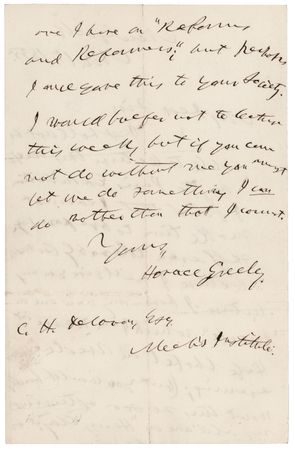 one I have on "Reforms
and Reformers;" but perhaps
I once gave this to your Society.
I would prefer not to lecture
this week, but if you can
not do without me you must
let me do something I can
do rather than that I cannot.
Yours,
Horace Greeley.
C. H. Delavan, Esq.
Mech's Institute.